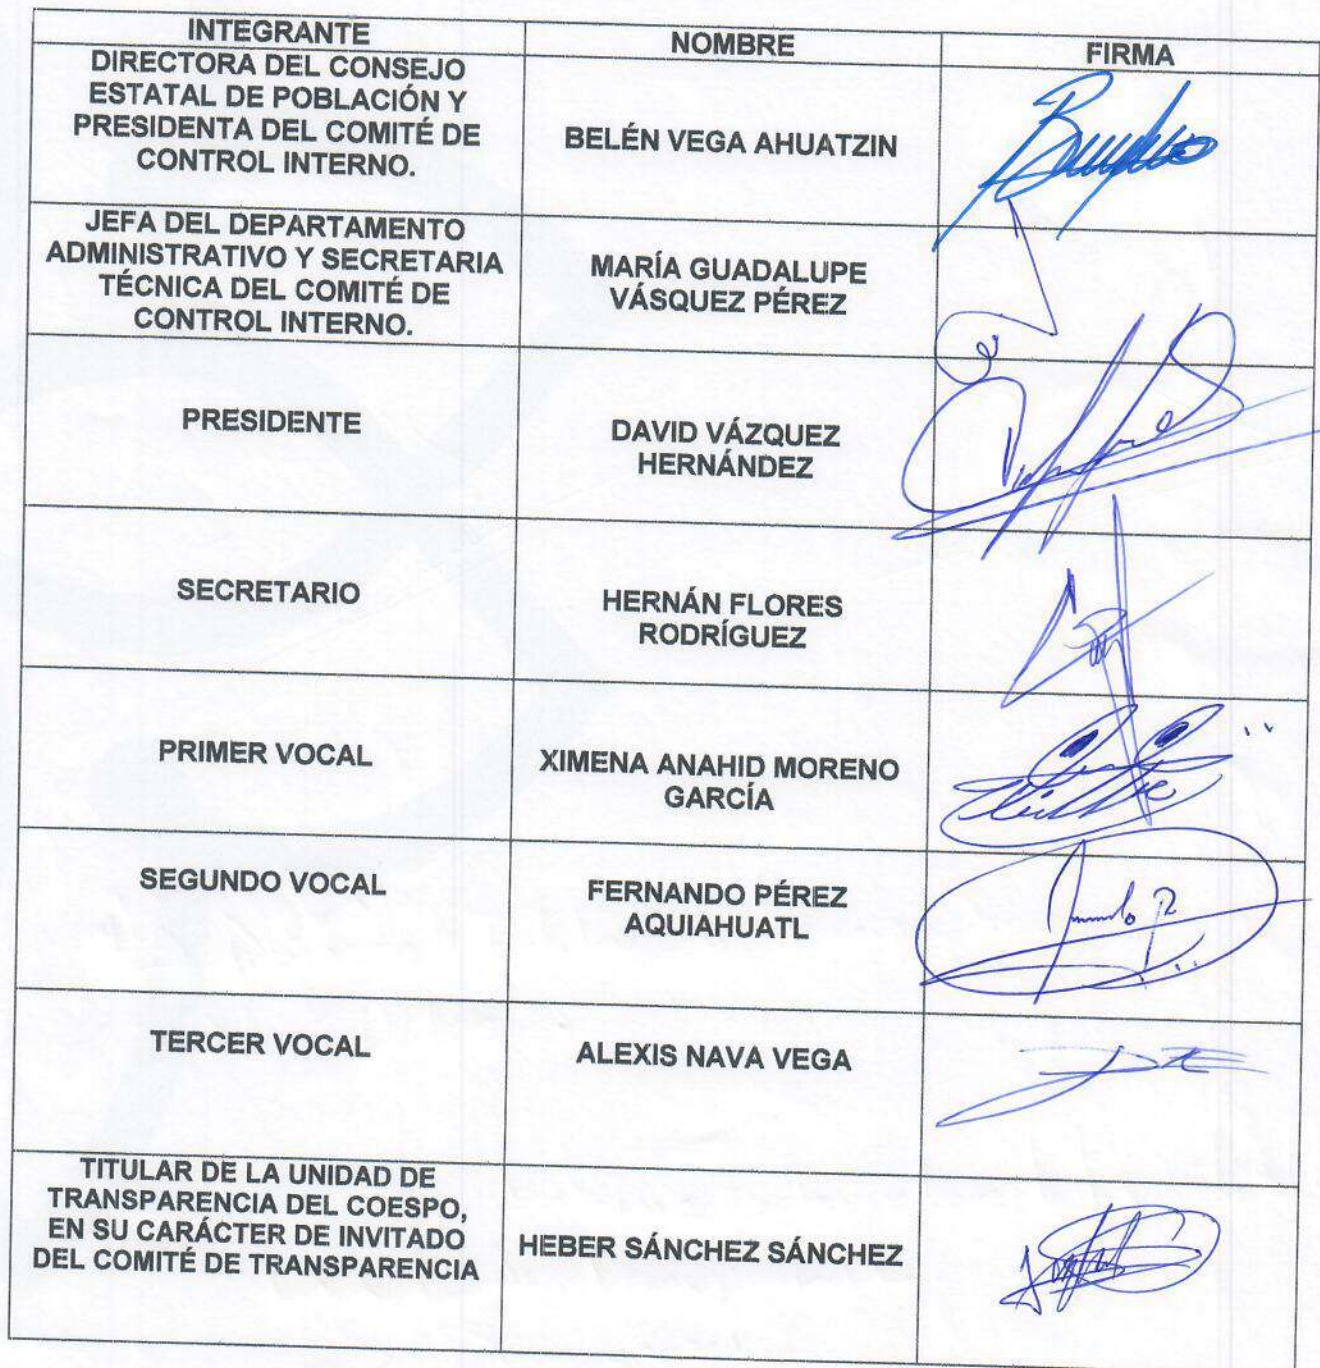 INTEGRANTE
NOMBRE
FIRMA
DIRECTORA DEL CONSEJO
ESTATAL DE POBLACIÓN Y
PRESIDENTA DEL COMITÉ DE
CONTROL INTERNO.
BELÉN VEGA AHUATZIN
JEFA DEL DEPARTAMENTO
ADMINISTRATIVO Y SECRETARIA
TÉCNICA DEL COMITÉ DE
CONTROL INTERNO.
MARÍA GUADALUPE
VÁSQUEZ PÉREZ
PRESIDENTE
DAVID VÁZQUEZ
HERNÁNDEZ
SECRETARIO
HERNÁN FLORES
RODRÍGUEZ
PRIMER VOCAL
XIMENA ANAHID MORENO
GARCÍA
SEGUNDO VOCAL
FERNANDO PÉREZ
AQUIAHUATL
TERCER VOCAL
ALEXIS NAVA VEGA
TITULAR DE LA UNIDAD DE
TRANSPARENCIA DEL COESPO,
EN SU CARÁCTER DE INVITADO
DEL COMITÉ DE TRANSPARENCIA
HEBER SÁNCHEZ SÁNCHEZ